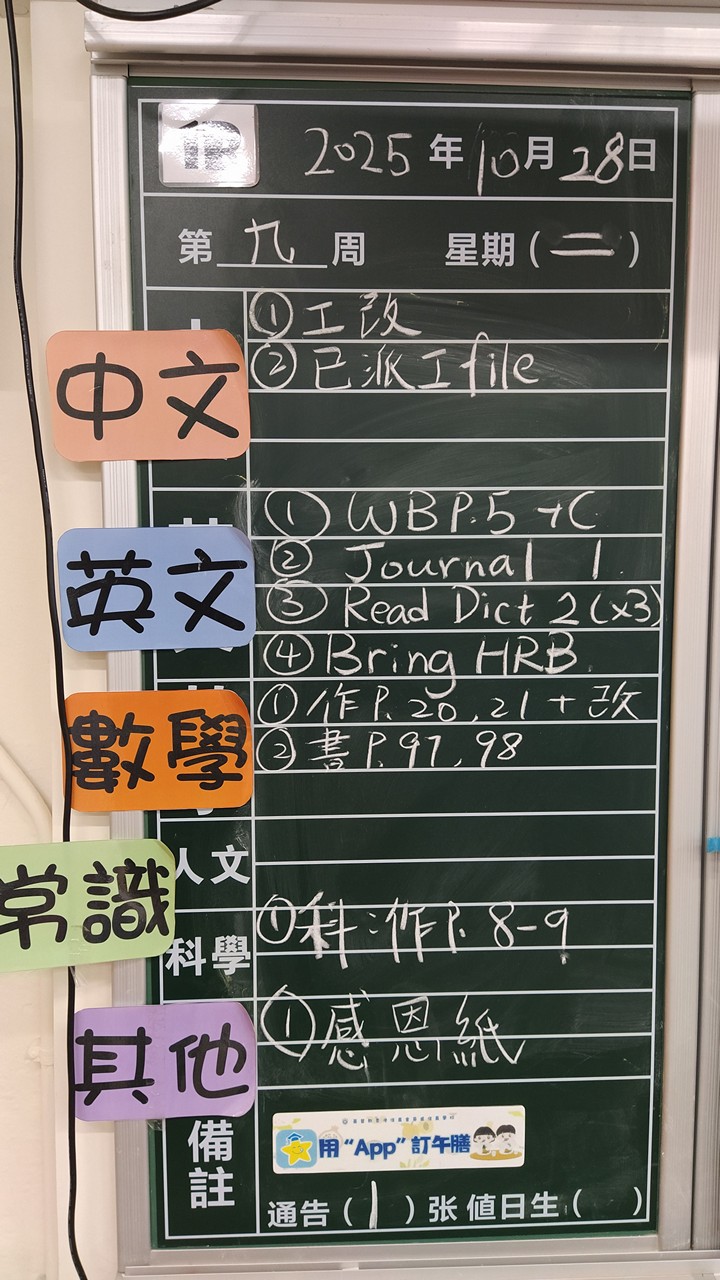 2025 年 10 月 28 日
第 九 周 星期 ( 二 )
① 工改
中文
② 已派工file
① WB P.5 + C
英文
② Journal 1
③ Read Dict 2 (x3)
④ Bring HRB
① 作 P. 20, 21 + 改
數學
② 書 P. 97, 98
人文
常識
科學
① 科:作 P. 8-9
① 感恩紙
其他
備註
用“App”訂午膳
通告 ( 1 ) 张 值日生 ( )